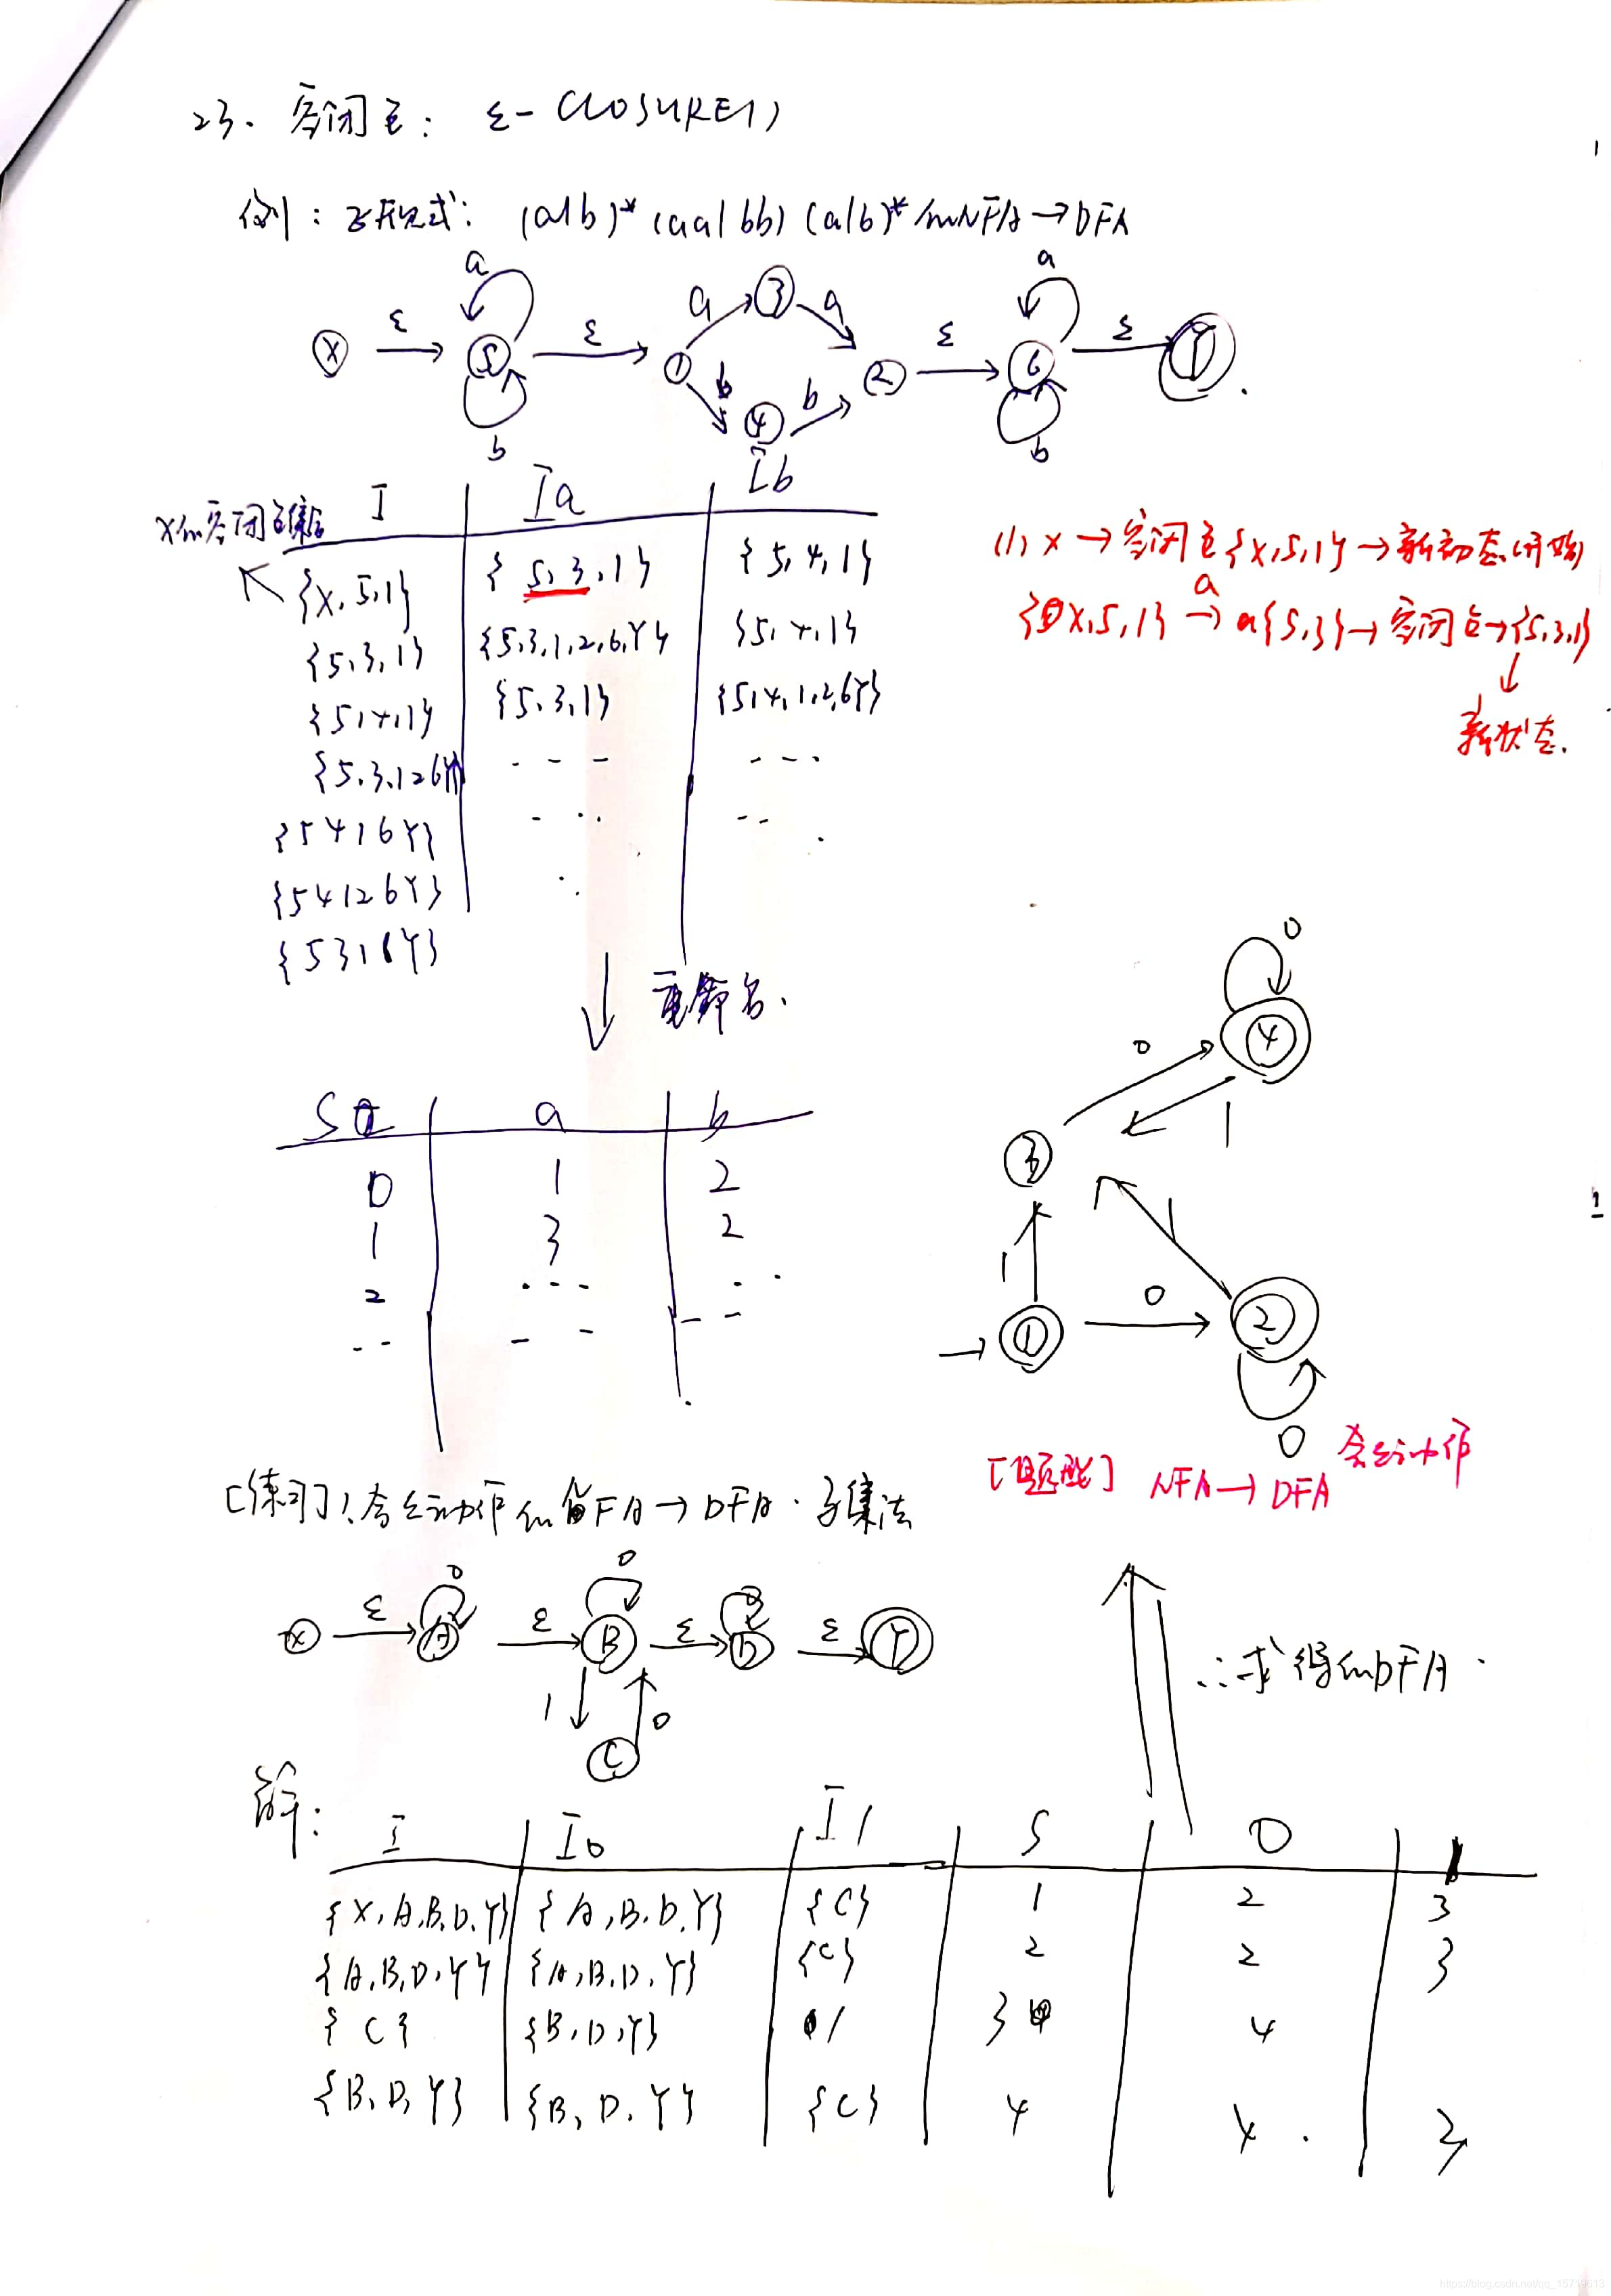 23. 空闭包: ε-CLOSURE()
例: 正规式: (a|b)* (aa|bb) (a|b)* 的NFA→DFA
a a
a 3 a
X ε 5 ε 1 2 ε 6 ε Y
b 4 b
b b
X的空闭包集合 I Ia Ib
{X,5,1} {5,3,1} {5,4,1}
{5,3,1} {5,3,1,2,6,Y} {5,4,1}
{5,4,1} {5,3,1} {5,4,1,2,6Y}
{5,3,126Y} --- ---
{5416Y}
{54126Y}
{5316Y}
(1) X → 空闭包{X,5,1} → 新初态(开始)
{X,5,1} a→ a{5,3} → 空闭包→{5,3,1}
新状态.
重命名.
S a b
0 1 2
1 3 2
2 ---
0
4
0
1
3
1 1
1 0 2
0
[题型] NFA→DFA 含ε动作
[练习]: 含ε动作的FA→DFA. 子集法
0 0
X ε A ε B ε D ε Y
1 0
C
∴求得的DFA.
解:
I I0 I1 S 0 1
{X,A,B,D,Y} {A,B,D,Y} {C} 1 2 3
{A,B,D,Y} {A,B,D,Y} {C} 2 2 3
{C} {B,D,Y} / 3 4
{B,D,Y} {B,D,Y} {C} 4 4. 3